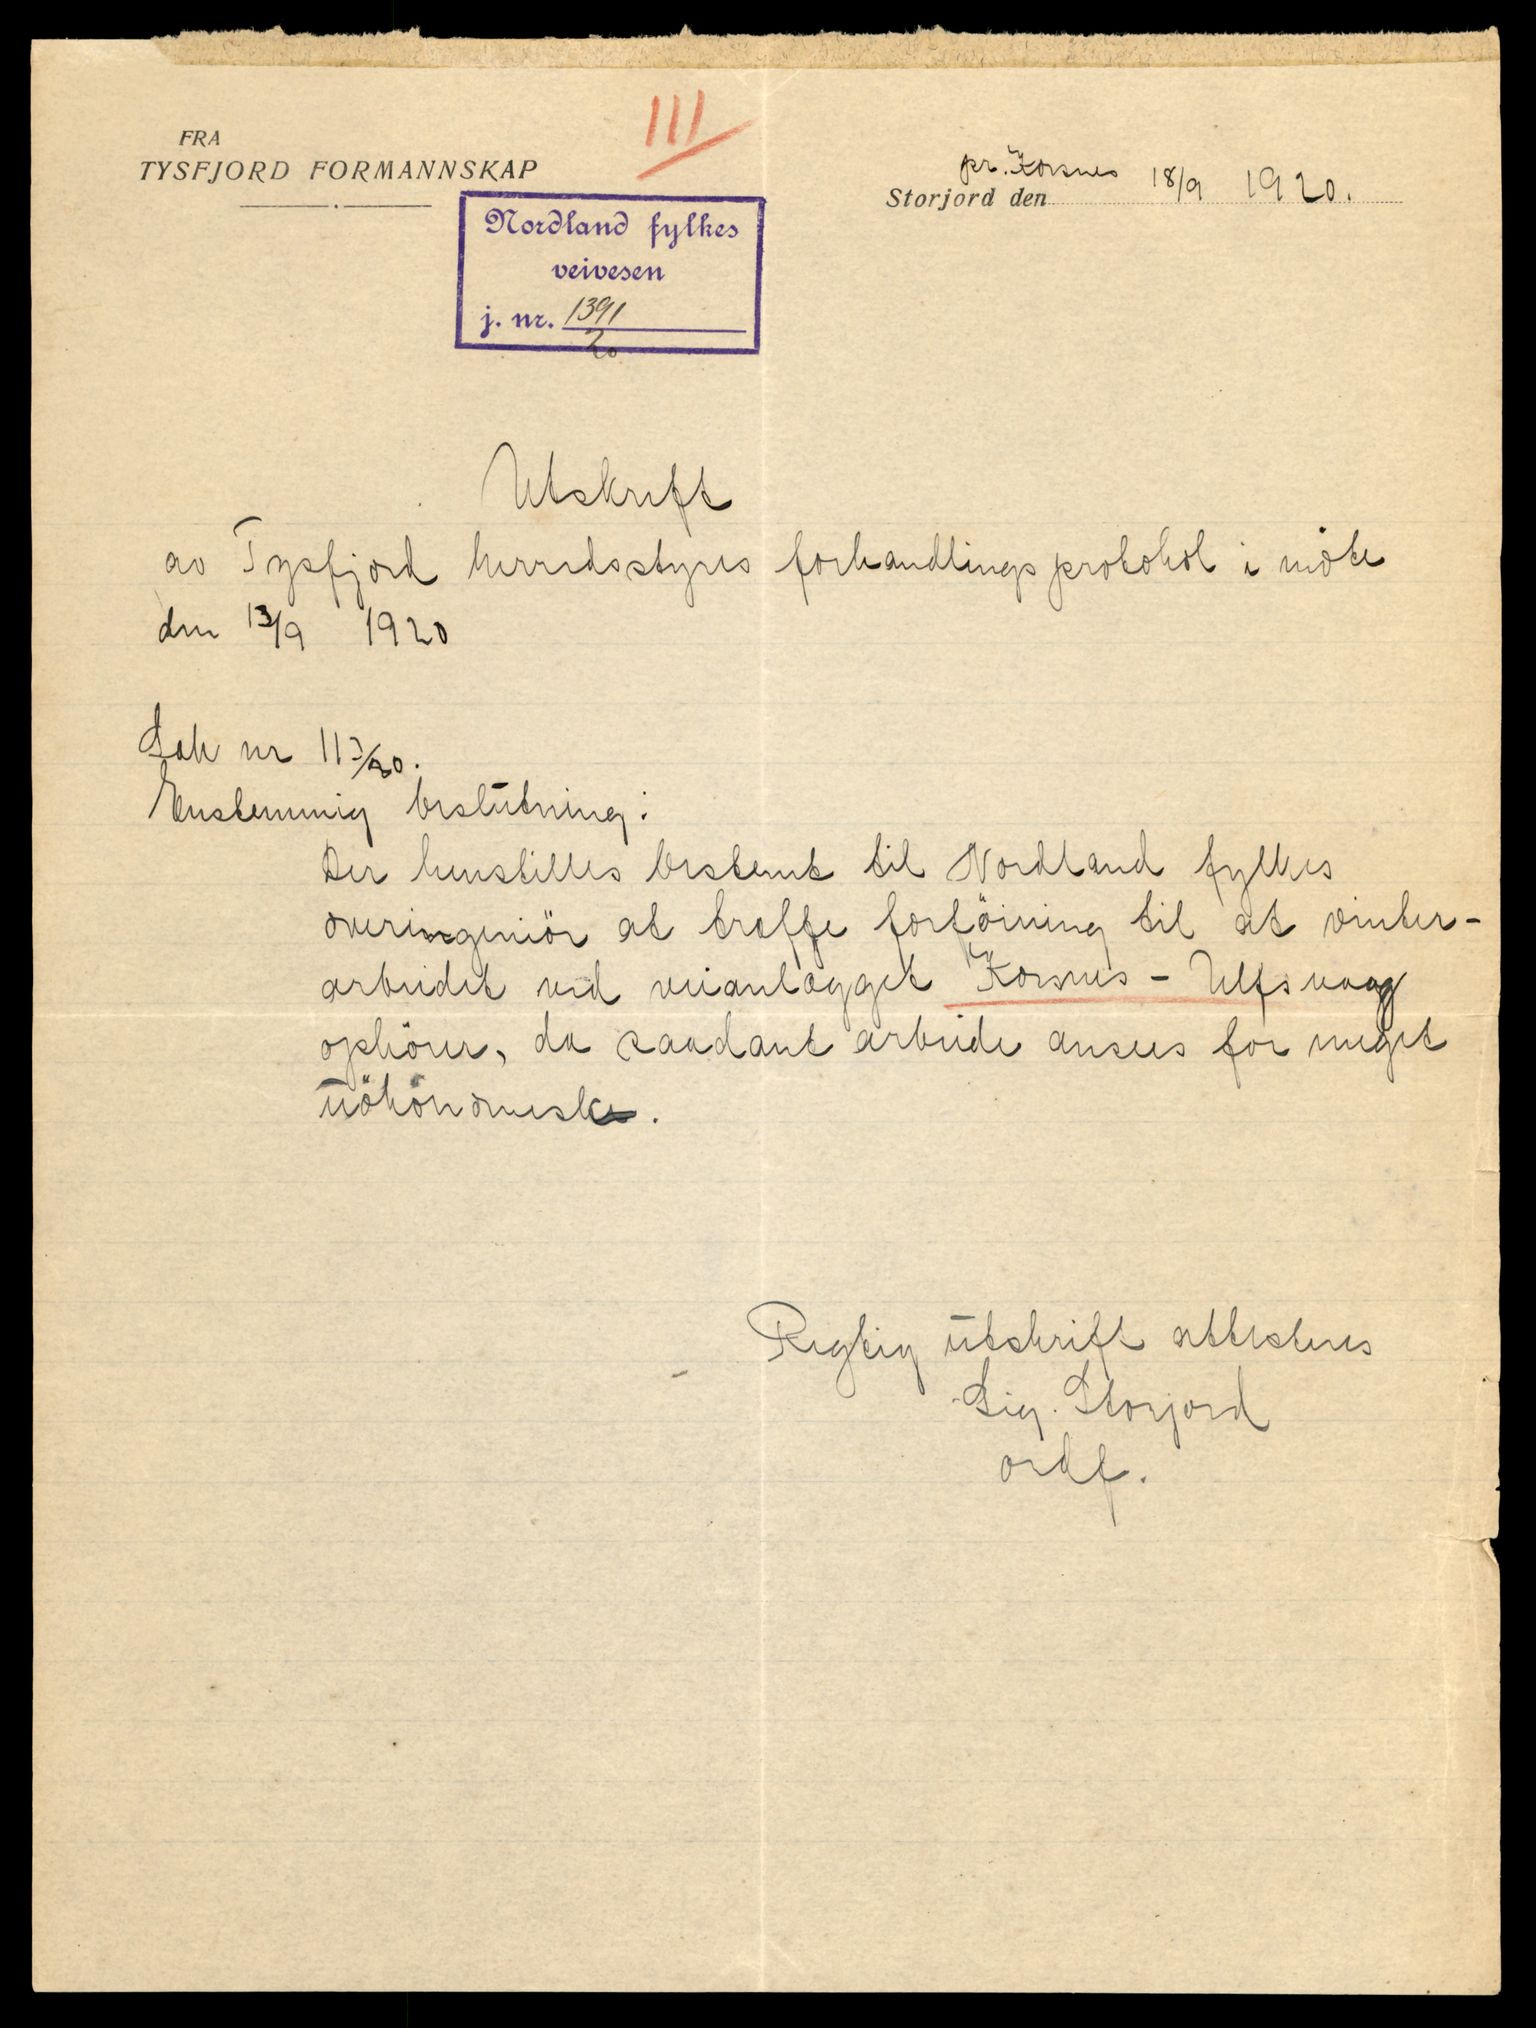 III
FRA
TYSFJORD FORMANNSKAP
pr. Korsnes
Storjord den 18/9 1920.
Nordland fylkes
veivesen
j. nr. 1391
20
Utskrift
av Tysfjord herredsstyres forhandlingsprotokol i möte
den 13/9 1920
Sak nr 113/20.
Enstemmig beslutning:
Der henstilles bestemt til Nordland fylkes
overingeniör at træffe forföining til at vinter-
arbeidet ved veianlægget Korsnes - Ulfsvaag
ophörer, da saadant arbeide ansees for meget
uökonomisk.
Rigtig utskrift attesteres
Sig. Storjord
ordf.